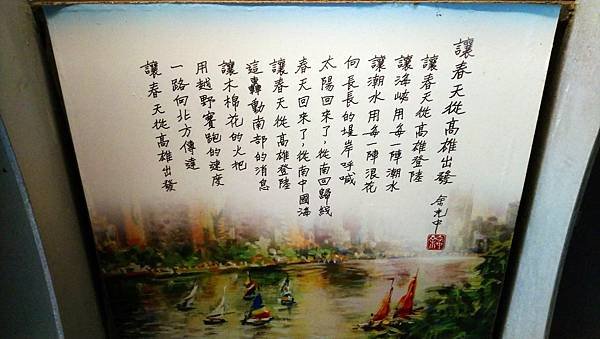 讓春天從高雄出發
余光中
讓春天從高雄登陸
讓海峽用每一陣潮水
讓潮水用每一陣浪花
向長長的堤岸呼喊
太陽回來了，從南回歸線
春天回來了，從南中國海
讓春天從高雄登陸
這轟動南部的消息
讓木棉花的火把
用越野賽跑的速度
一路向北方傳達
讓春天從高雄出發